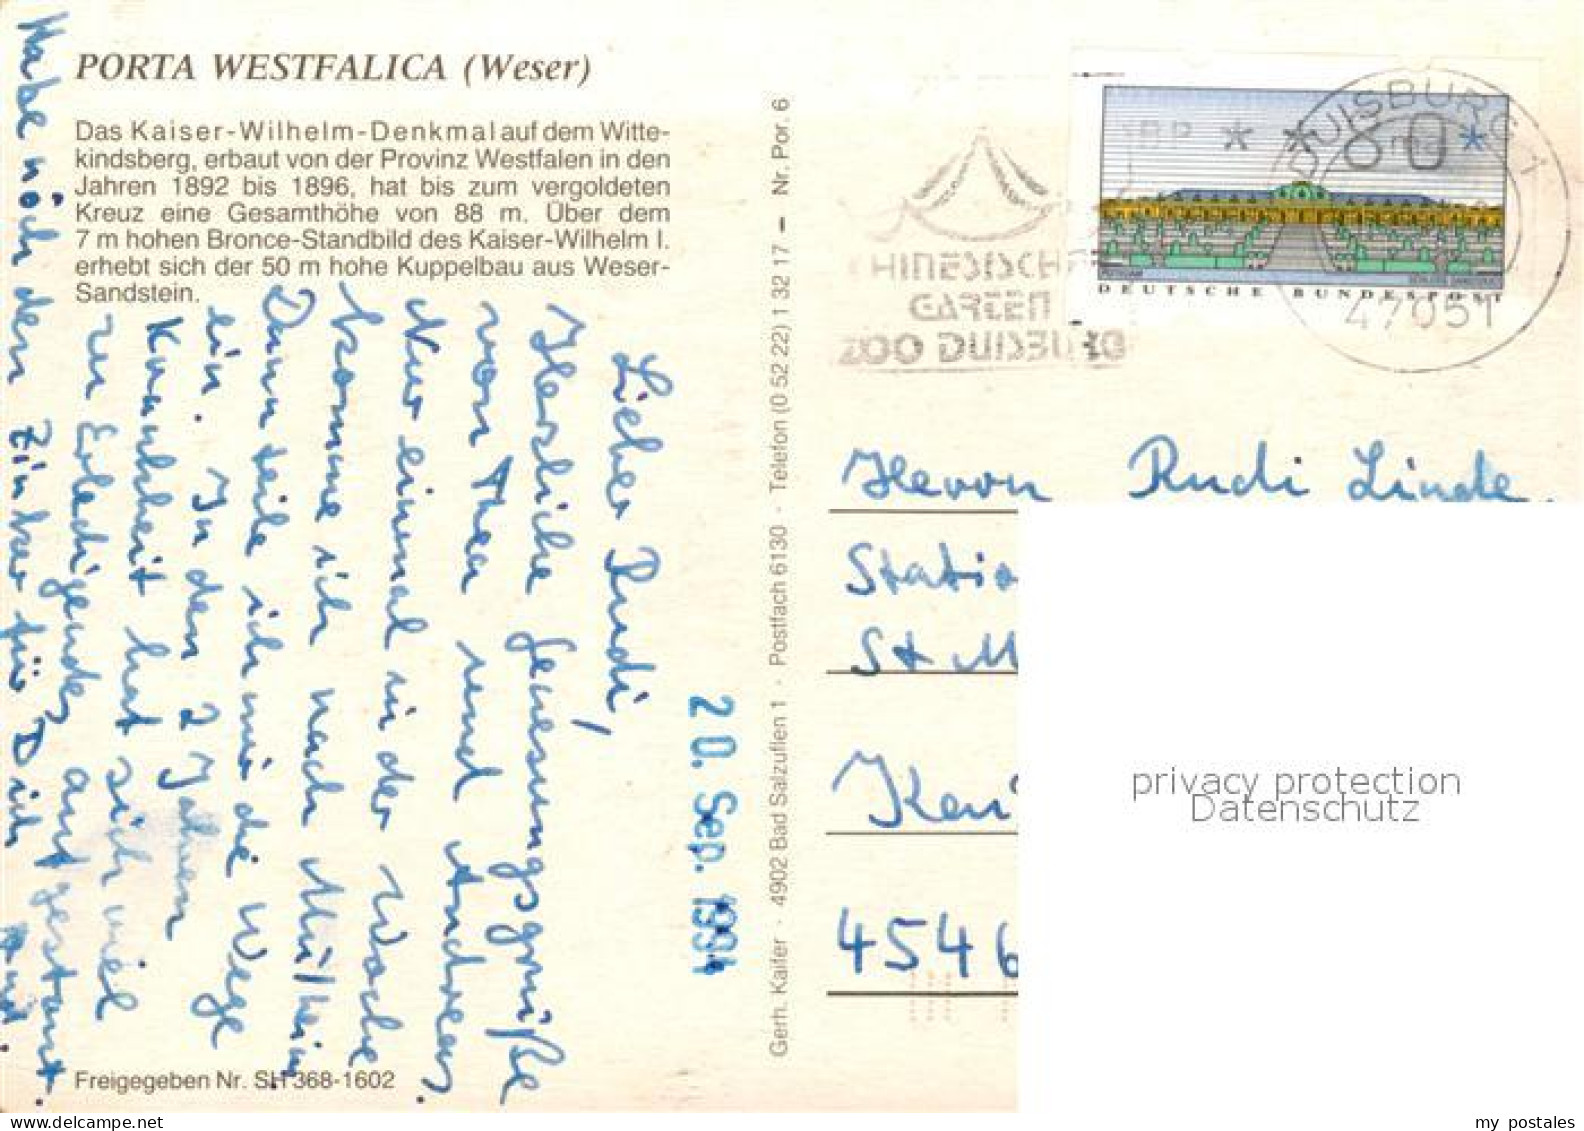 PORTA WESTFALICA (Weser)
Das Kaiser-Wilhelm-Denkmal auf dem Witte-
kindsberg, erbaut von der Provinz Westfalen in den
Jahren 1892 bis 1896, hat bis zum vergoldeten
Kreuz eine Gesamthöhe von 88 m. Über dem
7 m hohen Bronce-Standbild des Kaiser-Wilhelm I.
erhebt sich der 50 m hohe Kuppelbau aus Weser-
Sandstein.
Lieber Rudi,
Herzliche Genesungsgrüße
von Thea und Andreas.
Nur einmal in der Woche
komme ich nach Mülheim.
Dann teile ich mir die Wege
ein. In den 2 Jahren
Krankheit hat sich viel
zu Erledigendes aufgestaut.
Habe noch den für Dich
Freigegeben Nr. SH 368-1602
20. Sep. 1994
Gerh. Kaifer · 4902 Bad Salzuflen 1 · Postfach 6130 · Telefon (0 52 22) 1 32 17 — Nr. Por. 6
CHINESISCHER
GARTEN
ZOO DUISBURG
DBP
80
DEUTSCHE BUNDESPOST
DUISBURG 1
47051
Herrn Rudi Linde.
Statio
St M
4546
privacy protection
Datenschutz
my postales
www.delcampe.net